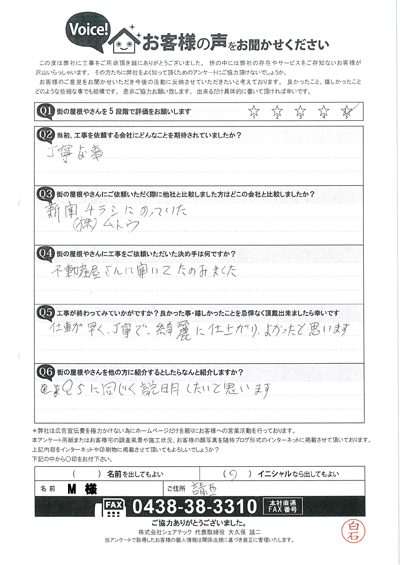 Voice!
お客様の声をお聞かせください
この度は弊社に工事をご用命頂き誠にありがとうございました。世の中には弊社の存在やサービスをご存知ないお客様が
沢山いらっしゃいます。その方たちに弊社をよく知って頂くためのアンケートにご協力頂けないでしょうか。
お客様のご意見をお聞かせいただき今後の活動に反映させていただきたいと考えております。良かったこと、嬉しかったこと
どのような些細な事でも結構です。是非ご協力お願い致します。出来るだけ具体的に書いて頂ければ幸いです。
Q1 街の屋根やさんを5段階で評価をお願いします ☆ ☆ ☆ ☆ ☆
Q2 当初、工事を依頼する会社にどんなことを期待されていましたか?
丁寧な事
Q3 街の屋根やさんにご依頼いただく際に他社と比較しました方はどこの会社と比較したか?
新聞チラシにのっていた
(株)ムトウ
Q4 街の屋根やさんに工事をご依頼いただいた決め手は何ですか?
不動産屋さんに聞いてたのみました
Q5 工事が終わってみていかがですか?良かった事・嬉しかったことを忌憚なく頂戴出来ましたら幸いです
仕事が早く、丁寧で、綺麗に仕上がり、よかったと思います
Q6 街の屋根やさんを他の方に紹介するとしたらなんと紹介しますか?
Q5に同じく説明したいと思います
*弊社は広告宣伝費を極力かけない為にホームページだけを頼りにお客様への営業活動を行っております。
本アンケート用紙またはお客様宅の調査風景や施工状況、お客様の顔写真を随時ブログ形式のインターネットに掲載させて頂いております。
上記内容をインターネットや印刷物に掲載させて頂いてもよろしいでしょうか?
下記の中から○印をお付け下さい。
( )名前を出してもよい (○)イニシャルなら出してもよい
名前 M 様 ご住所
FAX 0438-38-3310 本社直通 FAX番号
ご協力ありがとうございました。
株式会社シェアテック 代表取締役 大久保 誠二
当アンケートで取得したお客様の個人情報は関係法規に基づき厳正に管理いたします。
白石